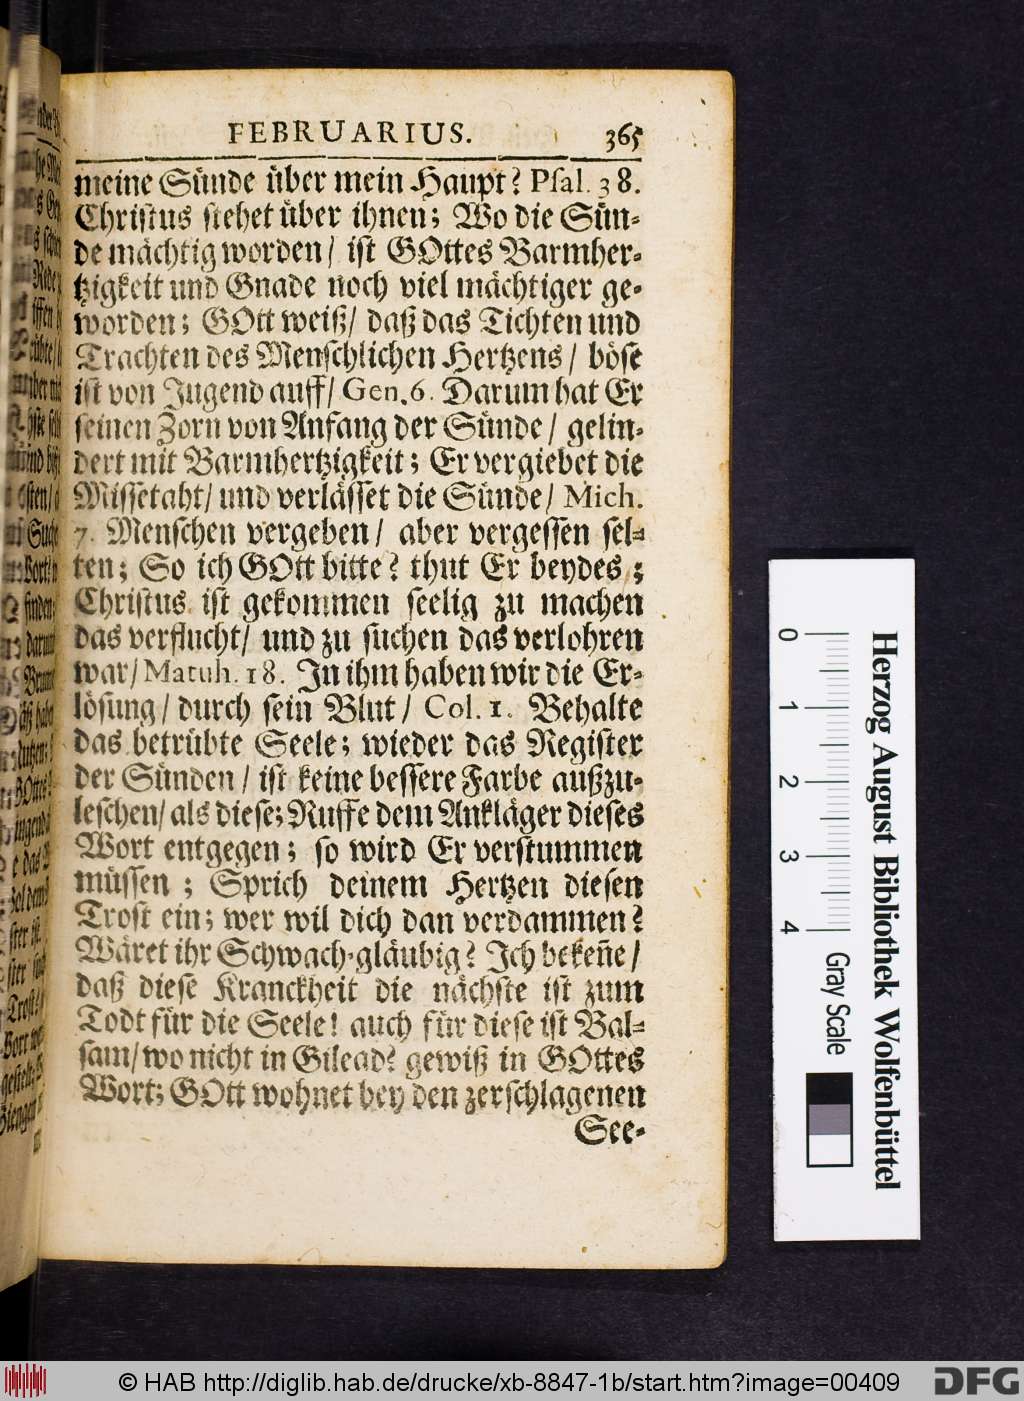 FEBRUARIUS. 365
meine Sünde über mein Haupt? Psal. 38.
Christus stehet über ihnen; Wo die Sün-
de mächtig worden/ ist GOttes Barmher-
tzigkeit und Gnade noch viel mächtiger ge-
worden; GOtt weiß/ daß das Tichten und
Trachten des Menschlichen Hertzens/ böse
ist von Jugend auff/ Gen. 6. Darum hat Er
seinen Zorn von Anfang der Sünde/ gelin-
dert mit Barmhertzigkeit; Er vergiebet die
Missetaht/ und verlässet die Sünde/ Mich.
7. Menschen vergeben/ aber vergessen sel-
ten; So ich GOtt bitte? thut Er beydes;
Christus ist gekommen seelig zu machen
das verflucht/ und zu suchen das verlohren
war/ Matth. 18. In ihm haben wir die Er-
lösung/ durch sein Blut/ Col. 1. Behalte
das betrübte Seele; wieder das Register
der Sünden/ ist keine bessere Farbe außzu-
leschen/ als diese; Ruffe dem Ankläger dieses
Wort entgegen; so wird Er verstummen
müssen; Sprich deinem Hertzen diesen
Trost ein; wer wil dich dan verdammen?
Wäret ihr Schwach-gläubig? Ich bekeñe/
daß diese Kranckheit die nächste ist zum
Todt für die Seele! auch für diese ist Bal-
sam/ wo nicht in Gilead? gewiß in GOttes
Wort; GOtt wohnet bey den zerschlagenen
See-
0 1 2 3 4 Gray Scale
Herzog August Bibliothek Wolfenbüttel
© HAB http://diglib.hab.de/drucke/xb-8847-1b/start.htm?image=00409
DFG